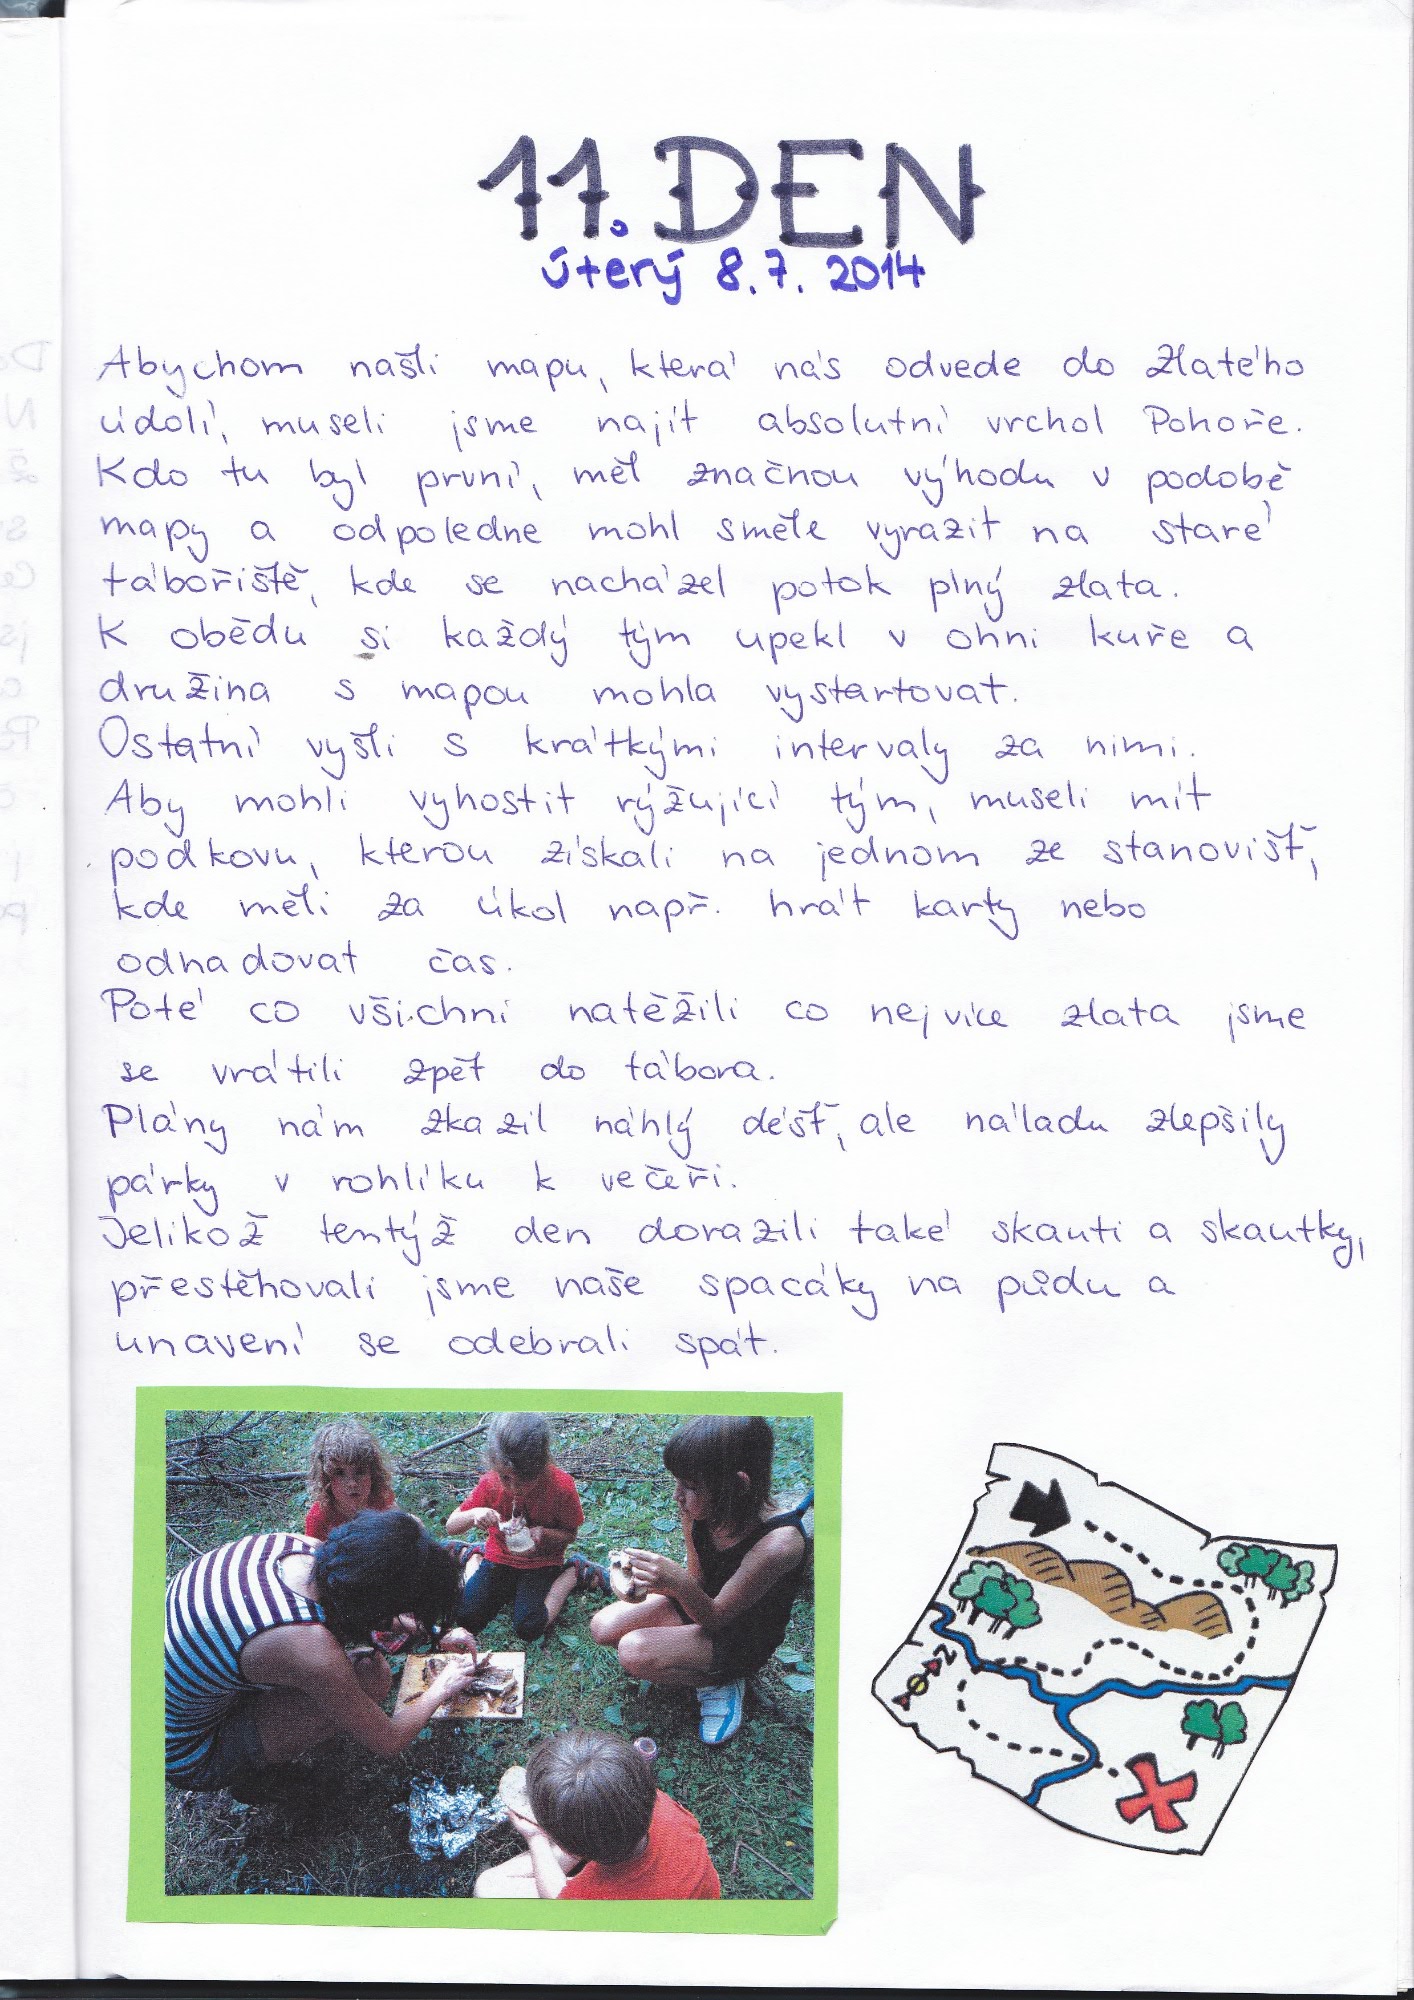 11. DEN
úterý 8.7. 2014
Abychom našli mapu, která nás odvede do Zlatého
údolí, museli jsme najít absolutní vrchol Pohoře.
Kdo tu byl první, měl značnou výhodu v podobě
mapy a odpoledne mohl směle vyrazit na staré
tábořiště, kde se nacházel potok plný zlata.
K obědu si každý tým upekl v ohni kuře a
družina s mapou mohla vystartovat.
Ostatní vyšli s krátkými intervaly za nimi.
Aby mohli vyhostit rýžující tým, museli mít
podkovu, kterou získali na jednom ze stanovišť,
kde měli za úkol např. hrát karty nebo
odhadovat čas.
Poté co všichni natěžili co nejvíce zlata jsme
se vrátili zpět do tábora.
Plány nám zkazil náhlý déšť, ale náladu zlepšily
párky v rohlíku k večeři.
Jelikož tentýž den dorazili také skauti a skautky,
přestěhovali jsme naše spacáky na půdu a
unavení se odebrali spát.
N